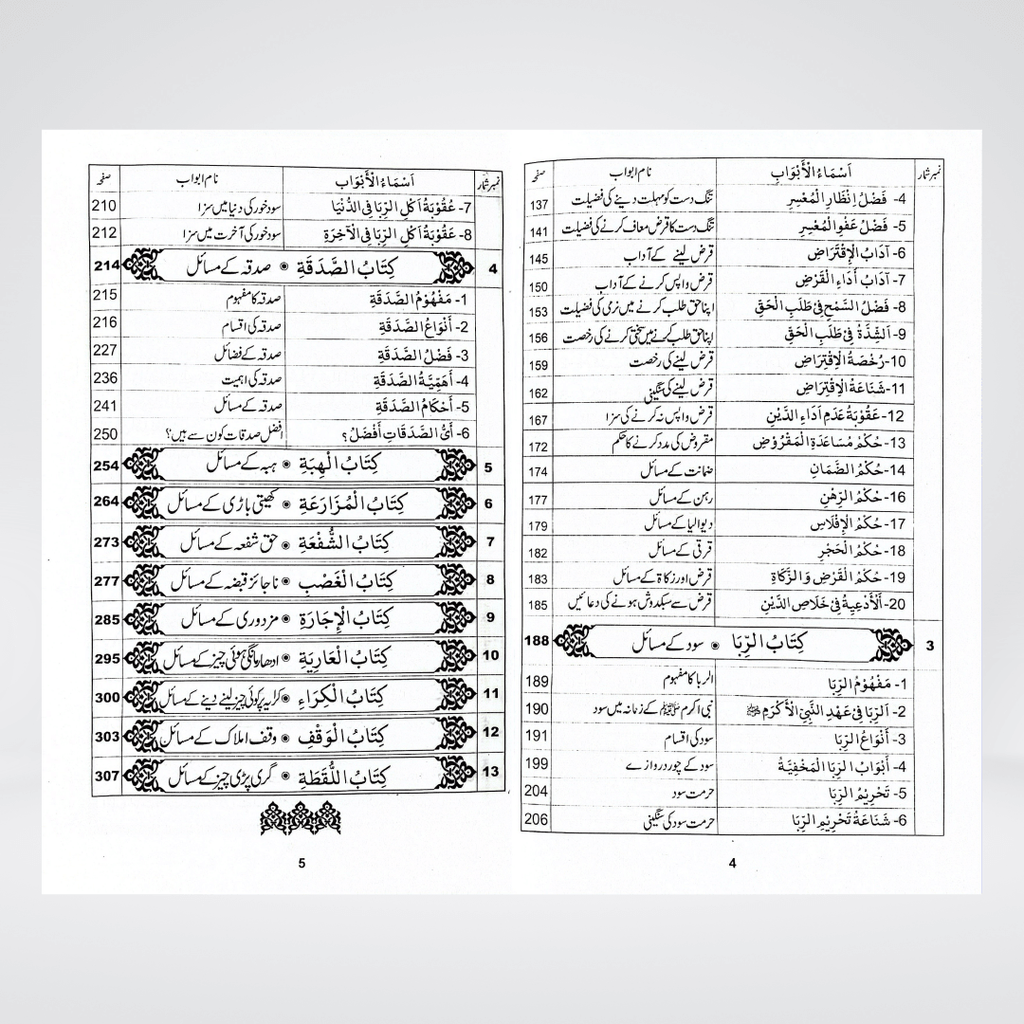 نمبر شمار اَسْمَاءُ الْأَبْوَابِ نام ابواب صفحہ
4- فَضْلُ إِنْظَارِ الْمُعْسِرِ تنگ دست کو مہلت دینے کی فضیلت 137
5- فَضْلُ عَفْوِ الْمُعْسِرِ تنگ دست کا قرض معاف کرنے کی فضیلت 141
6- آدَابُ الْإِقْتِرَاضِ قرض لینے کے آداب 145
7- آدَابُ أَدَاءِ الْقَرْضِ قرض واپس کرنے کے آداب 150
8- فَضْلُ السَّمْحِ فِيْ طَلَبِ الْحَقِّ اپنا حق طلب کرنے میں نرمی کی فضیلت 153
9- اَلشِّدَّةُ فِيْ طَلَبِ الْحَقِّ اپنا حق طلب کرنے میں سختی کرنے کی رخصت 156
10- رُخْصَةُ الْاِقْتِرَاضِ قرض لینے کی رخصت 159
11- شَنَاعَةُ الْاِقْتِرَاضِ قرض لینے کی سنگینی 162
12- عَقُوْبَةُ عَدَمِ أَدَاءِ الدَّيْنِ قرض واپس نہ کرنے کی سزا 167
13- حُكْمُ مُسَاعَدَةِ الْمَقْرُوْضِ مقروض کی مدد کرنے کا حکم 172
14- حُكْمُ الضَّمَانِ ضمانت کے مسائل 174
16- حُكْمُ الرَّهْنِ رہن کے مسائل 177
17- حُكْمُ الْإِفْلَاسِ دیوالیا کے مسائل 179
18- حُكْمُ الْحَجْرِ قرقی کے مسائل 182
19- حُكْمُ الْقَرْضِ وَ الزَّكَاةِ قرض اور زکاۃ کے مسائل 183
20- اَلْأَدْعِيَةُ فِيْ خَلَاصِ الدَّيْنِ قرض سے سبکدوش ہونے کی دعائیں 185
3 كِتَابُ الرِّبَا ◉ سود کے مسائل 188
1- مَفْهُوْمُ الرِّبَا الربا کا مفہوم 189
2- اَلرِّبَا فِيْ عَهْدِ النَّبِيِّ الْأَكْرَمِ ﷺ نبی اکرم ﷺ کے زمانہ میں سود 190
3- أَنْوَاعُ الرِّبَا سود کی اقسام 191
4- أَبْوَابُ الرِّبَا الْمَخْفِيَّةُ سود کے چور دروازے 199
5- تَحْرِيْمُ الرِّبَا حرمت سود 204
6- شَنَاعَةُ تَحْرِيْمِ الرِّبَا حرمت سود کی سنگینی 206
4
نمبر شمار اَسْمَاءُ الْأَبْوَابِ نام ابواب صفحہ
7- عُقُوْبَةُ اٰكِلِ الرِّبَا فِي الدُّنْيَا سود خور کی دنیا میں سزا 210
8- عَقُوْبَةُ اٰكِلِ الرِّبَا فِي الْآخِرَةِ سود خور کی آخرت میں سزا 212
4 كِتَابُ الصَّدَقَةِ ◉ صدقہ کے مسائل 214
1- مَفْهُوْمُ الصَّدَقَةِ صدقہ کا مفہوم 215
2- أَنْوَاعُ الصَّدَقَةِ صدقہ کی اقسام 216
3- فَضْلُ الصَّدَقَةِ صدقہ کے فضائل 227
4- أَهَمِّيَّةُ الصَّدَقَةِ صدقہ کی اہمیت 236
5- أَحْكَامُ الصَّدَقَةِ صدقہ کے مسائل 241
6- أَيُّ الصَّدَقَاتِ أَفْضَلُ؟ افضل صدقات کون سے ہیں؟ 250
5 كِتَابُ الْهِبَةِ ◉ ہبہ کے مسائل 254
6 كِتَابُ الْمُزَارَعَةِ ◉ کھیتی باڑی کے مسائل 264
7 كِتَابُ الشُّفْعَةِ ◉ حق شفعہ کے مسائل 273
8 كِتَابُ الْغَصْبِ ◉ ناجائز قبضہ کے مسائل 277
9 كِتَابُ الْإِجَارَةِ ◉ مزدوری کے مسائل 285
10 كِتَابُ الْعَارِيَةِ ◉ ادھار مانگی ہوئی چیز کے مسائل 295
11 كِتَابُ الْكِرَاءِ ◉ کرایہ پر کوئی چیز لینے دینے کے مسائل 300
12 كِتَابُ الْوَقْفِ ◉ وقف املاک کے مسائل 303
13 كِتَابُ اللُّقَطَةِ ◉ گری پڑی چیز کے مسائل 307
5